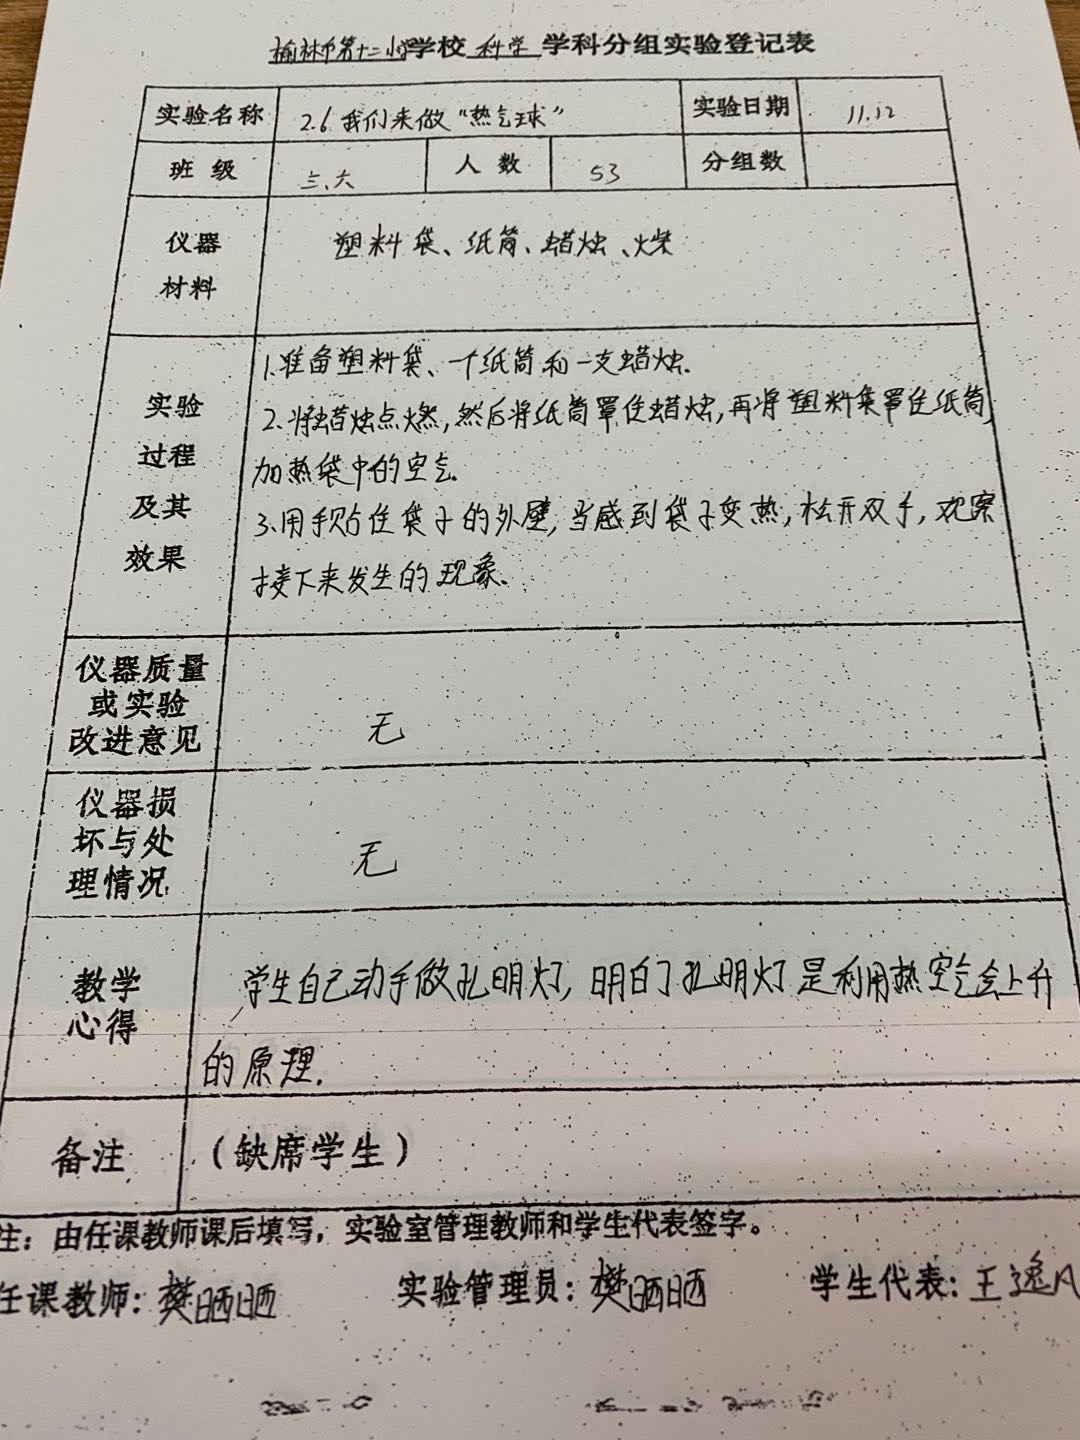 榆林市第十二小学校 科学 学科分组实验登记表
实验名称 2.6 我们来做“热气球” 实验日期 11.12
班级 三、六 人数 53 分组数
仪器材料 塑料袋、纸筒、蜡烛、火柴
实验过程及其效果
1.准备塑料袋、一个纸筒和一支蜡烛.
2.将蜡烛点燃,然后将纸筒罩住蜡烛,再将塑料袋罩住纸筒,
加热袋中的空气.
3.用手贴住袋子的外壁,当感到袋子变热,松开双手,观察
接下来发生的现象.
仪器质量或实验改进意见 无
仪器损坏与处理情况 无
教学心得
学生自己动手做孔明灯,明白了孔明灯是利用热空气会上升
的原理.
备注 (缺席学生)
注：由任课教师课后填写，实验室管理教师和学生代表签字。
任课教师：樊晒晒 实验管理员：樊晒晒 学生代表：王逸凡